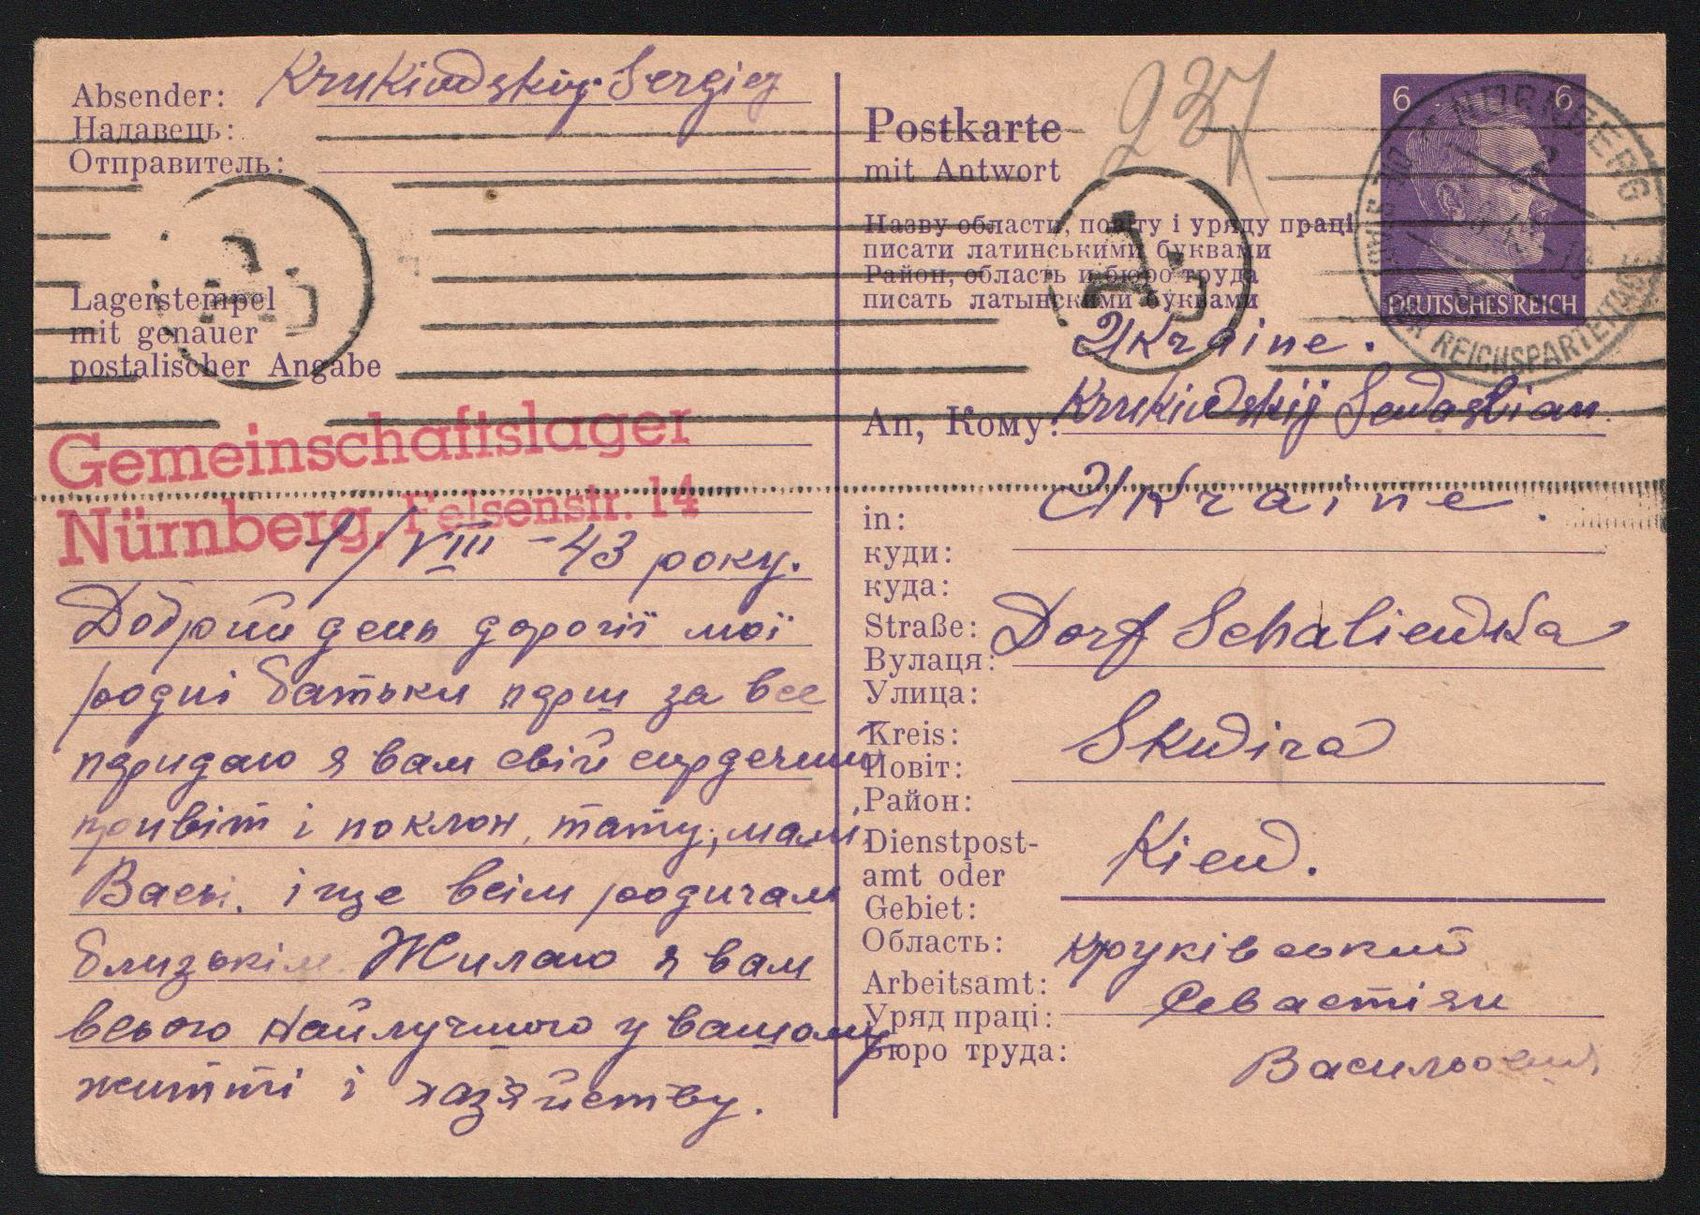 Absender: Krukiwdskij Sergiej
Надавець:
Отправитель:
Lagerstempel
mit genauer
postalischer Angabe
Gemeinschaftslager
Nürnberg, Felsenstr. 14
1/VIII - 43 року.
Добрий день дорогії мої
родні батьки перш за все
пиридаю я вам свій сирдечний
привіт і поклон, тату, мамі,
Васі. і ще всім родичам
близькім. Жилаю я вам
всього найлучшого у вашому
житті і хазяйству.
Postkarte
mit Antwort
237
Назву области, повіту і уряду праці
писати латинськими буквами
Район, область и бюро труда
писать латынскими буквами
6 6
DEUTSCHES REICH
NÜRNBERG
DER REICHSPARTEITAGE
Ukraine.
An, Кому: Krukiwdskij Sewastian
Ukraine.
in:
куди:
куда:
Straße: Dorf Schaliewka
Вулаця:
Улица:
Kreis: Skwira
Повіт:
Район:
Dienstpost-
amt oder Kiew.
Gebiet:
Область: Круківський
Arbeitsamt: Севастіян
Уряд праці:
Бюро труда: Васильович